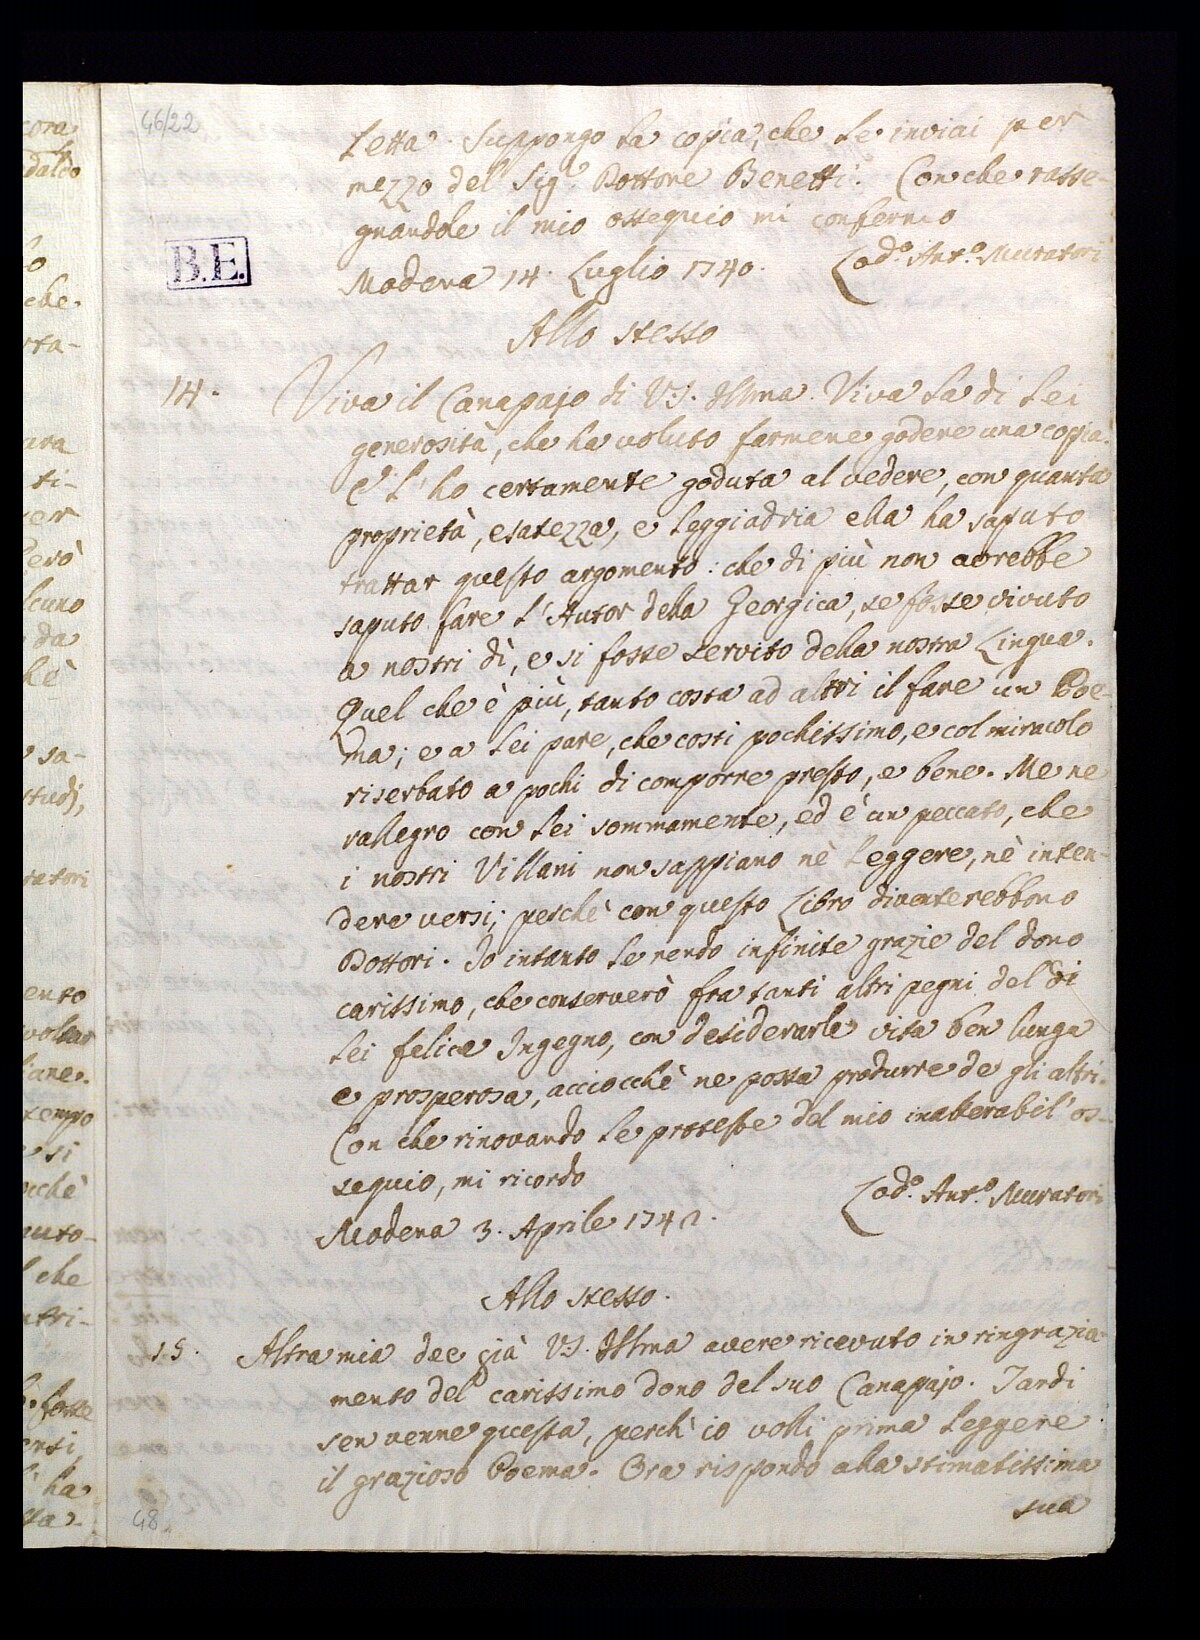 46/22
letta. Suppongo la copia, che le inviai per
mezzo del Sig.e Dottore Benetti. Con che rasse-
gnandole il mio ossequio mi confermo
B.E.
Modena 14. Luglio 1740. Lod.o Ant.o Muratori
Allo stesso
14. Viva il Canapajo di V.S. Illma. Viva la di Lei
generosità, che ha voluto farmene godere una copia.
E l'ho certamente goduta al vedere, con quanta
proprietà, esatezza, e leggiadria ella ha saputo
trattar questo argomento: che di più non avrebbe
saputo fare l'Autor della Georgica, se fosse vivuto
a nostri dì, e si fosse servito della nostra Lingua.
Quel che è più, tanto costa ad altri il fare un Poe-
ma; e a Lei pare, che costi pochissimo, e col miracolo
riserbato a pochi di comporre presto, e bene. Me ne
rallegro con Lei sommamente, ed è un peccato, che
i nostri Villani non sappiano nè leggere, nè inten-
dere versi; perchè con questo Libro diventerebbono
Dottori. Io intanto le rendo infinite grazie del dono
carissimo, che conserverò fra tanti altri pegni del di
Lei felice Ingegno, con desiderarle vita ben lunga
e prosperosa, acciocchè ne possa produrre de gli altri.
Con che rinovando le proteste del mio inalterabil' os-
sequio, mi ricordo
Lod.o Ant.o Muratori
Modena 3. Aprile 1742.
Allo stesso.
15. Altra mia dee già V.S. Illma avere ricevuto in ringrazia-
mento del carissimo dono del suo Canapajo. Tardi
sen venne questa, perch' io volli prima leggere
il grazioso Poema. Ora rispondo alla stimatissima
sua
48